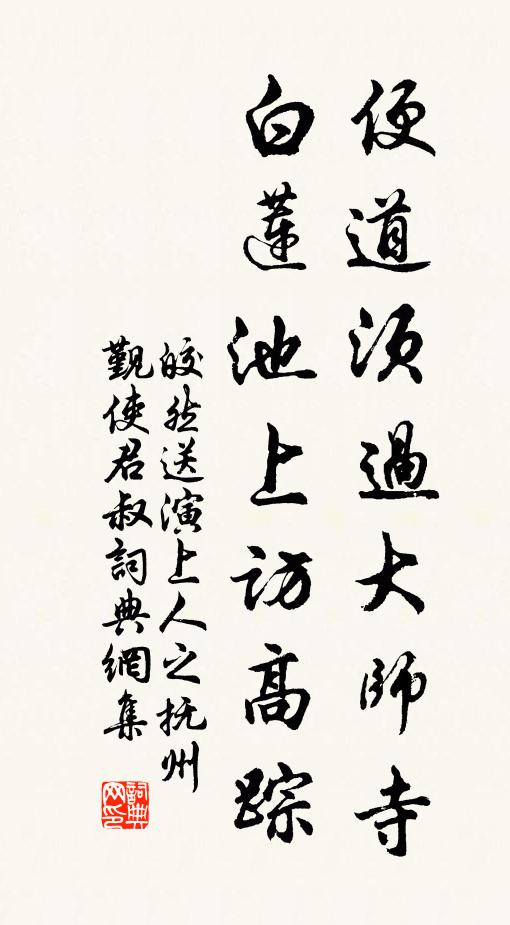 便道须過大師寺
白蓮池上访高踪
皎然送演上人之抚州
觐使君叔詞典網集
詞典网印